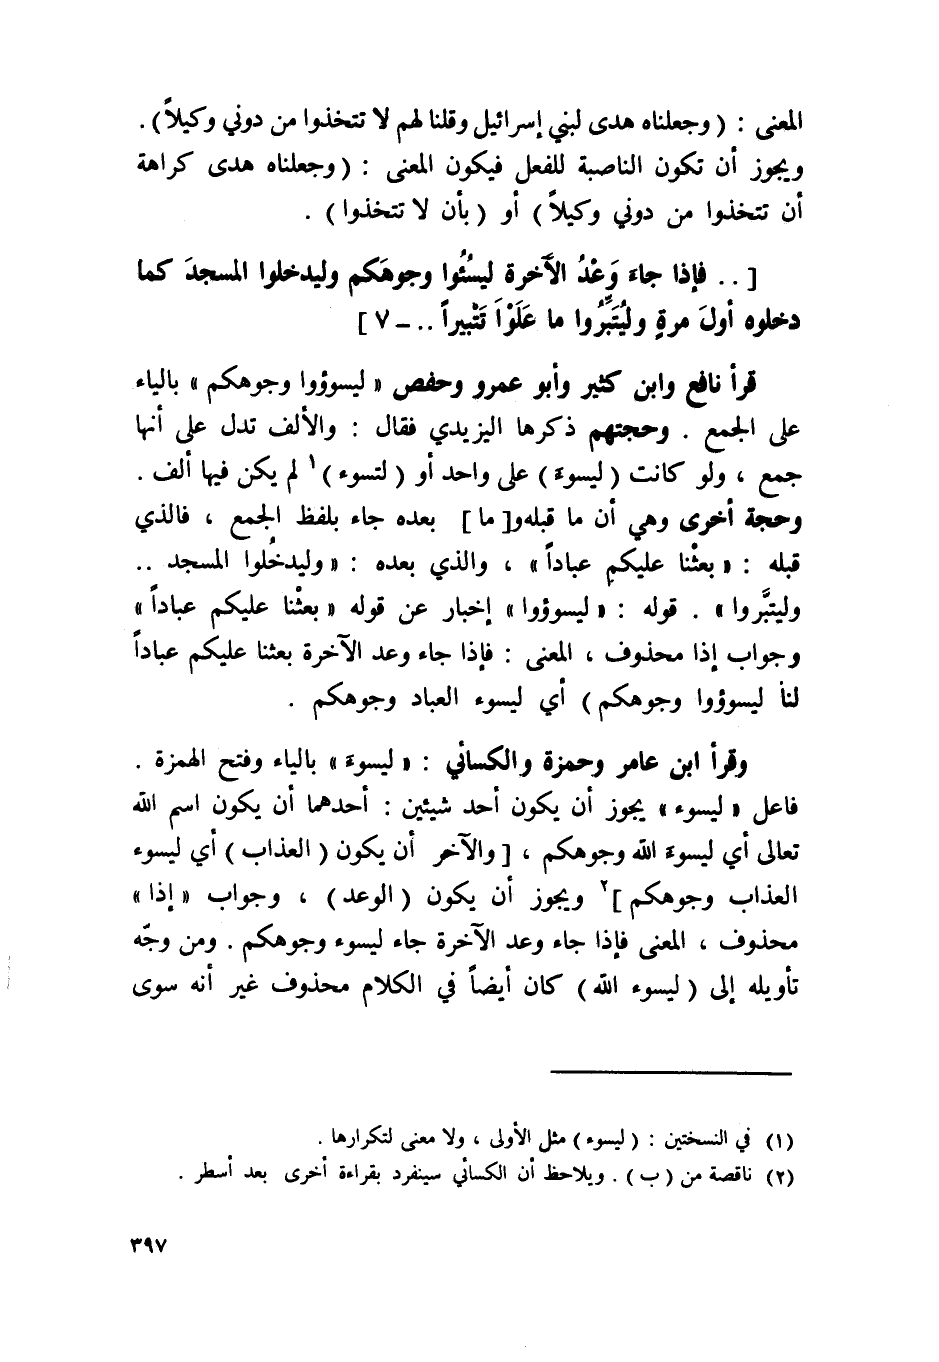 المعنى : ( وجعلناه هدى لبني إسرائيل وقلنا لهم لا تتخذوا من دوني وكيلاً ) .
ويجوز أن تكون الناصبة للفعل فيكون المعنى : ( وجعلناه هدى كراهة
أن تتخذوا من دوني وكيلاً ) أو ( بأن لا تتخذوا ) .
[ .. فإذا جاء وَعْدُ الآخرة ليسُئُوا وجوهَكم وليدخلوا المسجدَ كما
دخلوه أولَ مرةٍ وليُتَبِّرُوا ما عَلَوْا تَتْبيراً .. ــ ٧ ]
قرأ نافع وابن كثير وأبو عمرو وحفص « ليسوؤوا وجوهكم » بالياء
على الجمع . وحجتهم ذكرها اليزيدي فقال : والألف تدل على أنها
جمع ، ولو كانت ( ليسوءَ ) على واحد أو ( لتسوء )١ لم يكن فيها ألف .
وحجة أخرى وهي أن ما قبله و[ ما ] بعده جاء بلفظ الجمع ، فالذي
قبله : « بعثْنا عليكم عباداً » ، والذي بعده : « وليدخُلوا المسجد ..
وليتبِّروا » . قوله : « ليسوؤوا » إخبار عن قوله « بعثْنا عليكم عباداً »
وجواب إذا محذوف ، المعنى : فإذا جاء وعد الآخرة بعثنا عليكم عباداً
لنا ليسوؤوا وجوهكم ) أي ليسوء العباد وجوهكم .
وقرأ ابن عامر وحمزة والكسائي : « ليسوءَ » بالياء وفتح الهمزة .
فاعل « ليسوء » يجوز أن يكون أحد شيئين : أحدهما أن يكون اسم الله
تعالى أي ليسوءَ الله وجوهكم ، [ والآخر أن يكون ( العذاب ) أي ليسوء
العذاب وجوهكم ]٢ ويجوز أن يكون ( الوعد ) ، وجواب « إذا »
محذوف ، المعنى فإذا جاء وعد الآخرة جاء ليسوء وجوهكم . ومن وجّه
تأويله إلى ( ليسوء الله ) كان أيضاً في الكلام محذوف غير أنه سوى
(١) في النسختين : ( ليسوء ) مثل الأولى ، ولا معنى لتكرارها .
(٢) ناقصة من ( ب ) . ويلاحظ أن الكسائي سينفرد بقراءة أخرى بعد أسطر .
٣٩٧